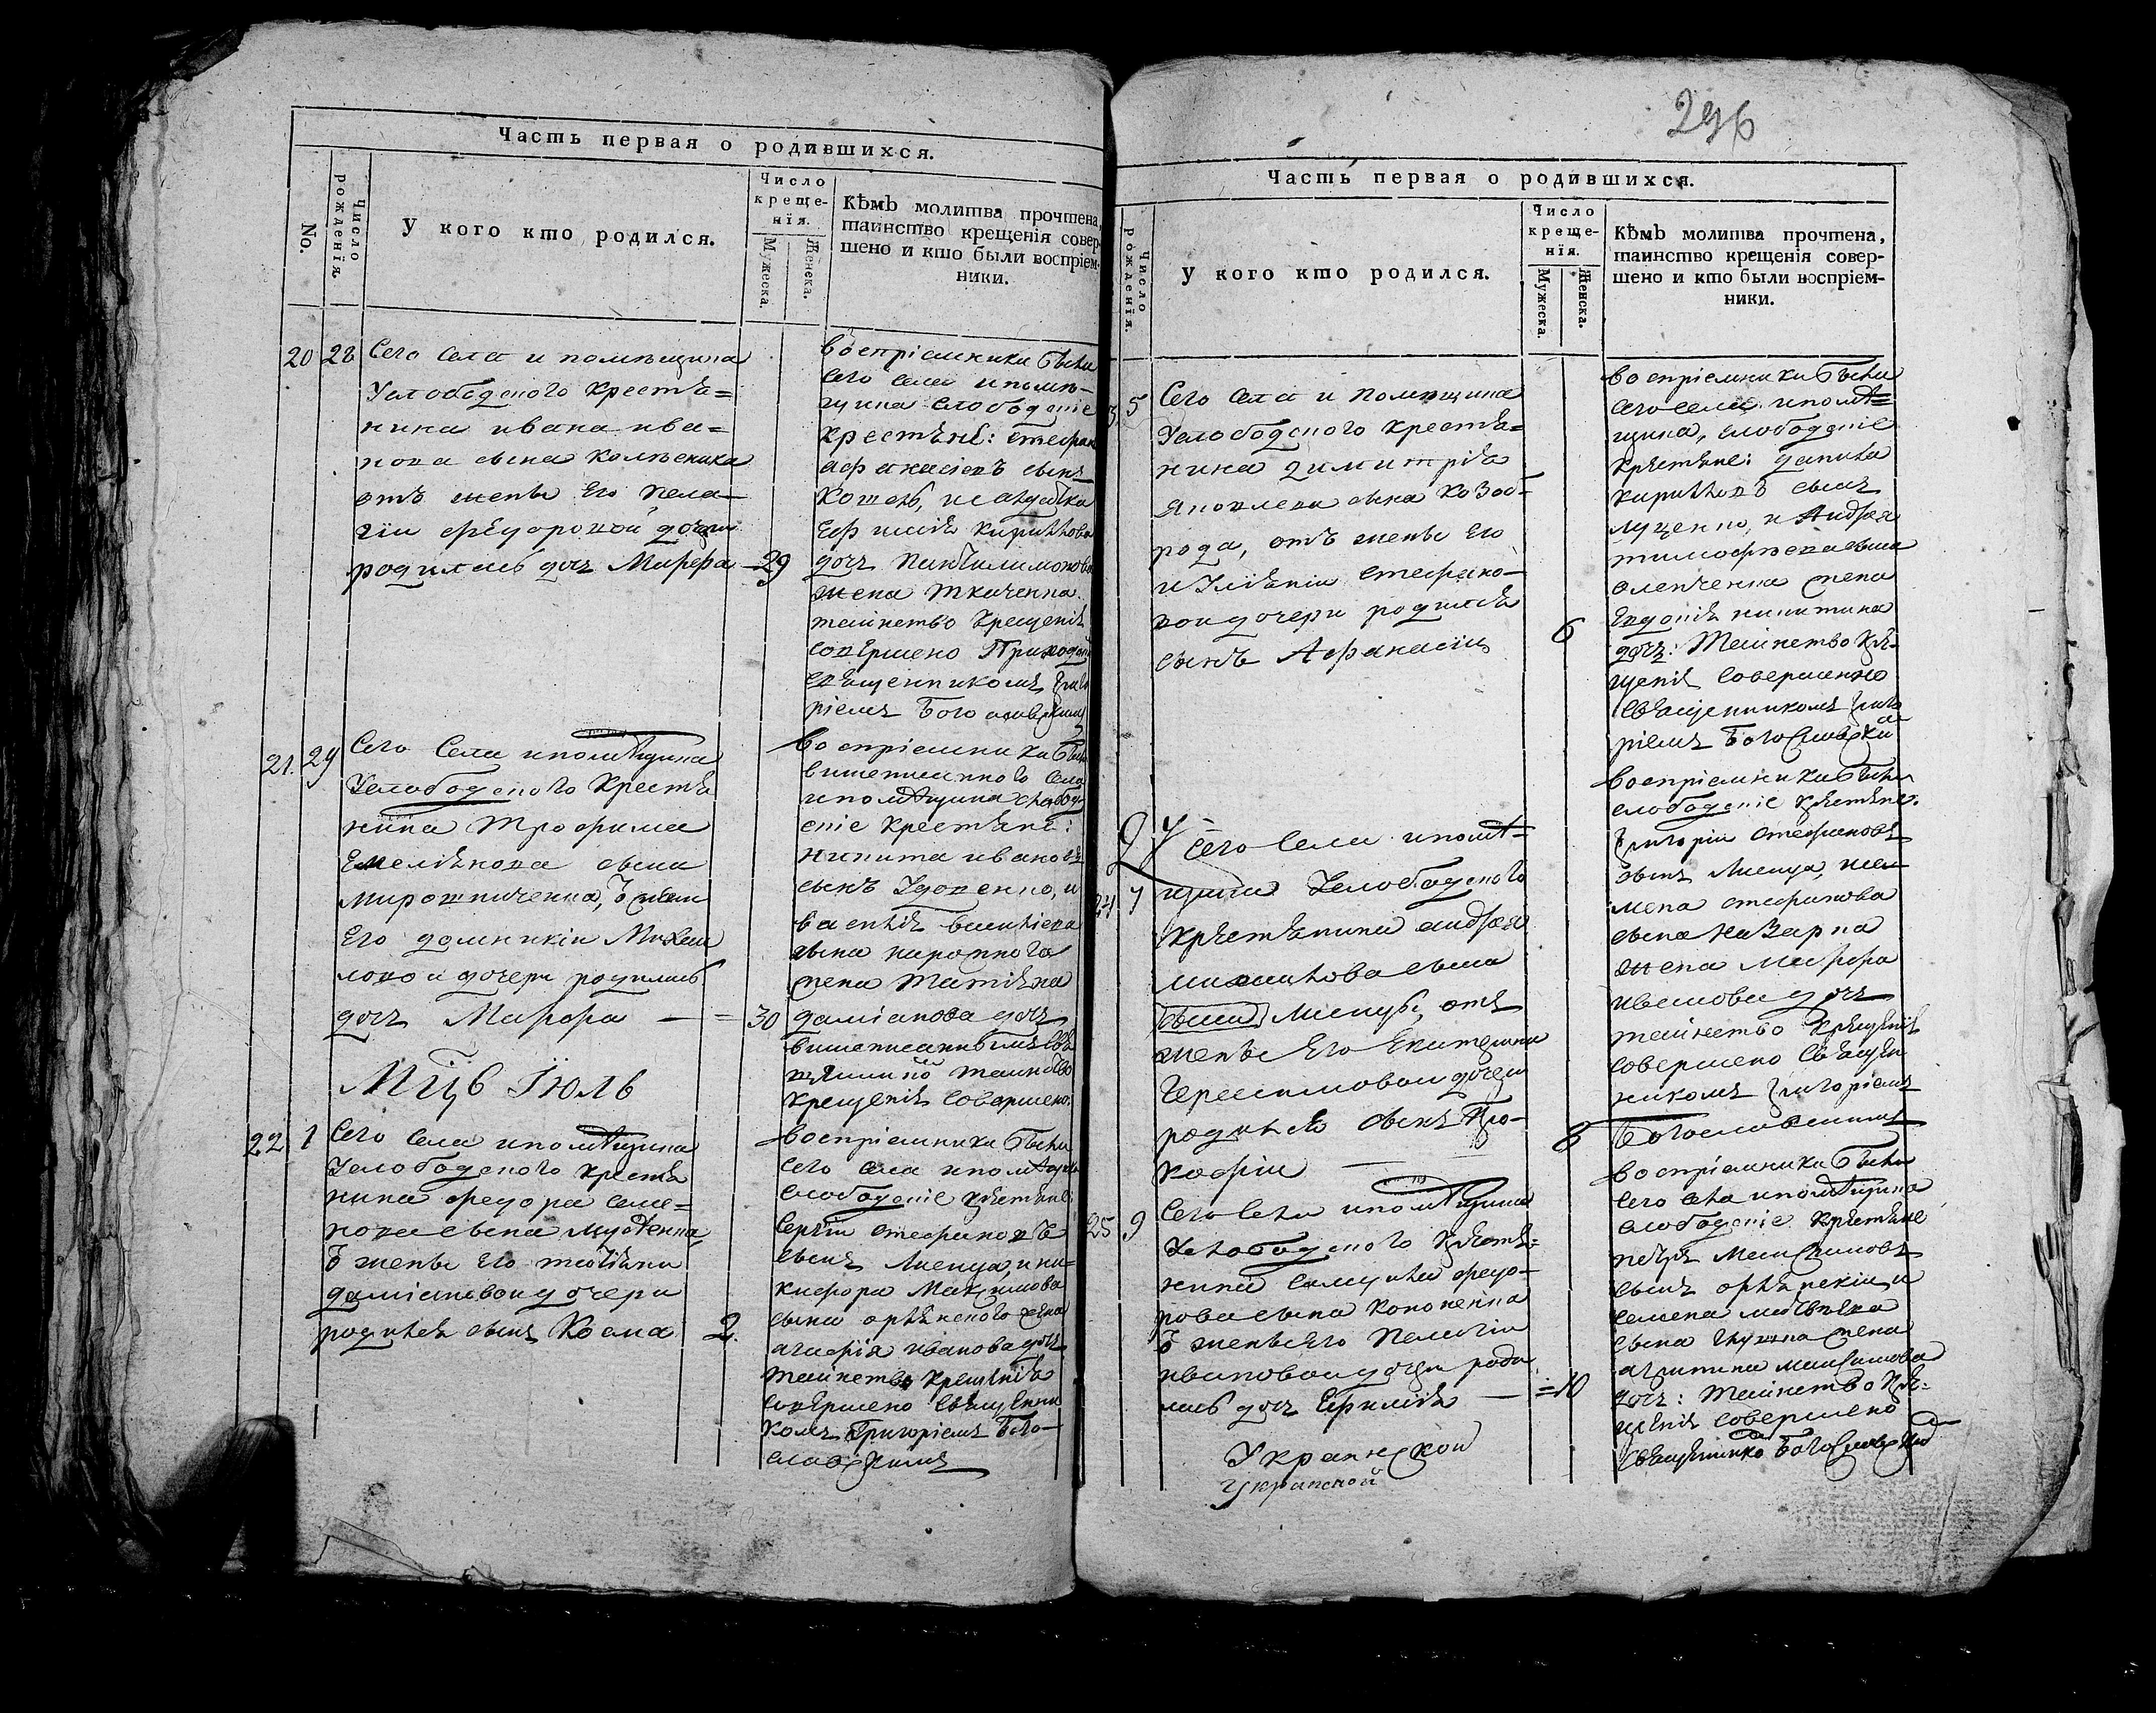 296
Часть первая о родившихся.
No.
Число рожденїя.
У кого кто родился.
Число креще-нїя.
Мужеска.
Женска.
Кѣмъ молитва прочтена,
таинство крещенїя совер-
шено и кто были воспрїем-
ники.
20 28 Сего села и помѣщика
Услободского крестья=
нина ивана ива=
нова сына
отъ жены Его Пела-
гіи федоровой дочери
родилась дочь Марфа 29
воспріемники были
сего села и помѣ-
щика слободскіе
крестьяне: стефан
афанасіевъ сынъ
Кошель, и
Ефимія Кирилова
дочь
жена Ткаченка.
таинство крещенія
совершено Приходским
священникомъ Григо
ріемъ Богословскимъ
21. 29 Сего Села и помѣщика
Услободского крестья
нина Трофима
Емеліянова сына
Мирошниченка,
Его домникіи Михаи
ловой дочери родилась
дочь Марфа — = 30
воспріемники были
вишеписанного села
и помѣщика слобод-
скіе крестьяне:
никита ивановъ
сынъ Удовенко, и
василія василіева
сына
жена Татіяна
даміанова дочь
вишеписаннымъ
таинство
крещенія совершено.
Мцъ Іюль
22 1 Сего села и помѣщика
Услободского крестья
нина федора семе=
нова сына
жены его татіяны
даміановой дочери
родился сынъ Косма 2.
воспріемники были
сего села и помѣщика
слободскіе крестьяне
Сергій стефановъ
сынъ Лисица, и ни=
кифора Максимова
сына жена
агафія иванова дочь
таинство крещенія
совершено священни
комъ Григоріемъ Бого-
словскимъ
Часть первая о родившихся.
Число рожденїя.
У кого кто родился.
Число креще-нїя.
Мужеска.
Женска.
Кѣмъ молитва прочтена,
таинство крещенїя совер-
шено и кто были воспрїем-
ники.
3 5 Сего села и помѣщика
Услободского крестья=
нина димитрія
яковлева сына Козао-
рода, отъ жены Его
иуліяніи стефано-
вой дочери родился
сынъ Афанасій 6
воспріемники были
сего села и помѣ=
щика, слободскіе
крестьяне: данила
кириловъ сынъ
луценко, и Андрея
тимофеева сына
жена
Евдокія никитина
дочь: Таинство кре-
щенія совершенно
священникомъ Григо
ріемъ Богословски
24 7 Сего села и помѣ=
щика Услободского
крестьянина андрея
михаилова сына
сына Лисицы, отъ
жены Его Екатерини
Герасимовой дочери
родился сынъ Про-
кофій — 8
воспріемники были
слободскіе крестьяне:
Григорій стефановъ
сынъ Лисица, и
стефанова
сына Назарка
жена Марфа
иванова дочь
таинство крещенія
совершено священ
никомъ Григоріемъ
Богословскимъ
25 9 Сего села и помѣщика
Услободского крестья=
нина самуила федо-
рова сына Кононенка
жены Его Пелагіи
ивановой дочери роди
лась дочь Ефимія — = 10
воспріемники были
сего села и помѣщика
слободскіе крестьяне
петръ Максимовъ
сынъ и
семена матвѣева
сына жена
агрипина максимова
дочь: Таинство кре=
щенія совершено
священнико Богословски
Украинской
Украинской